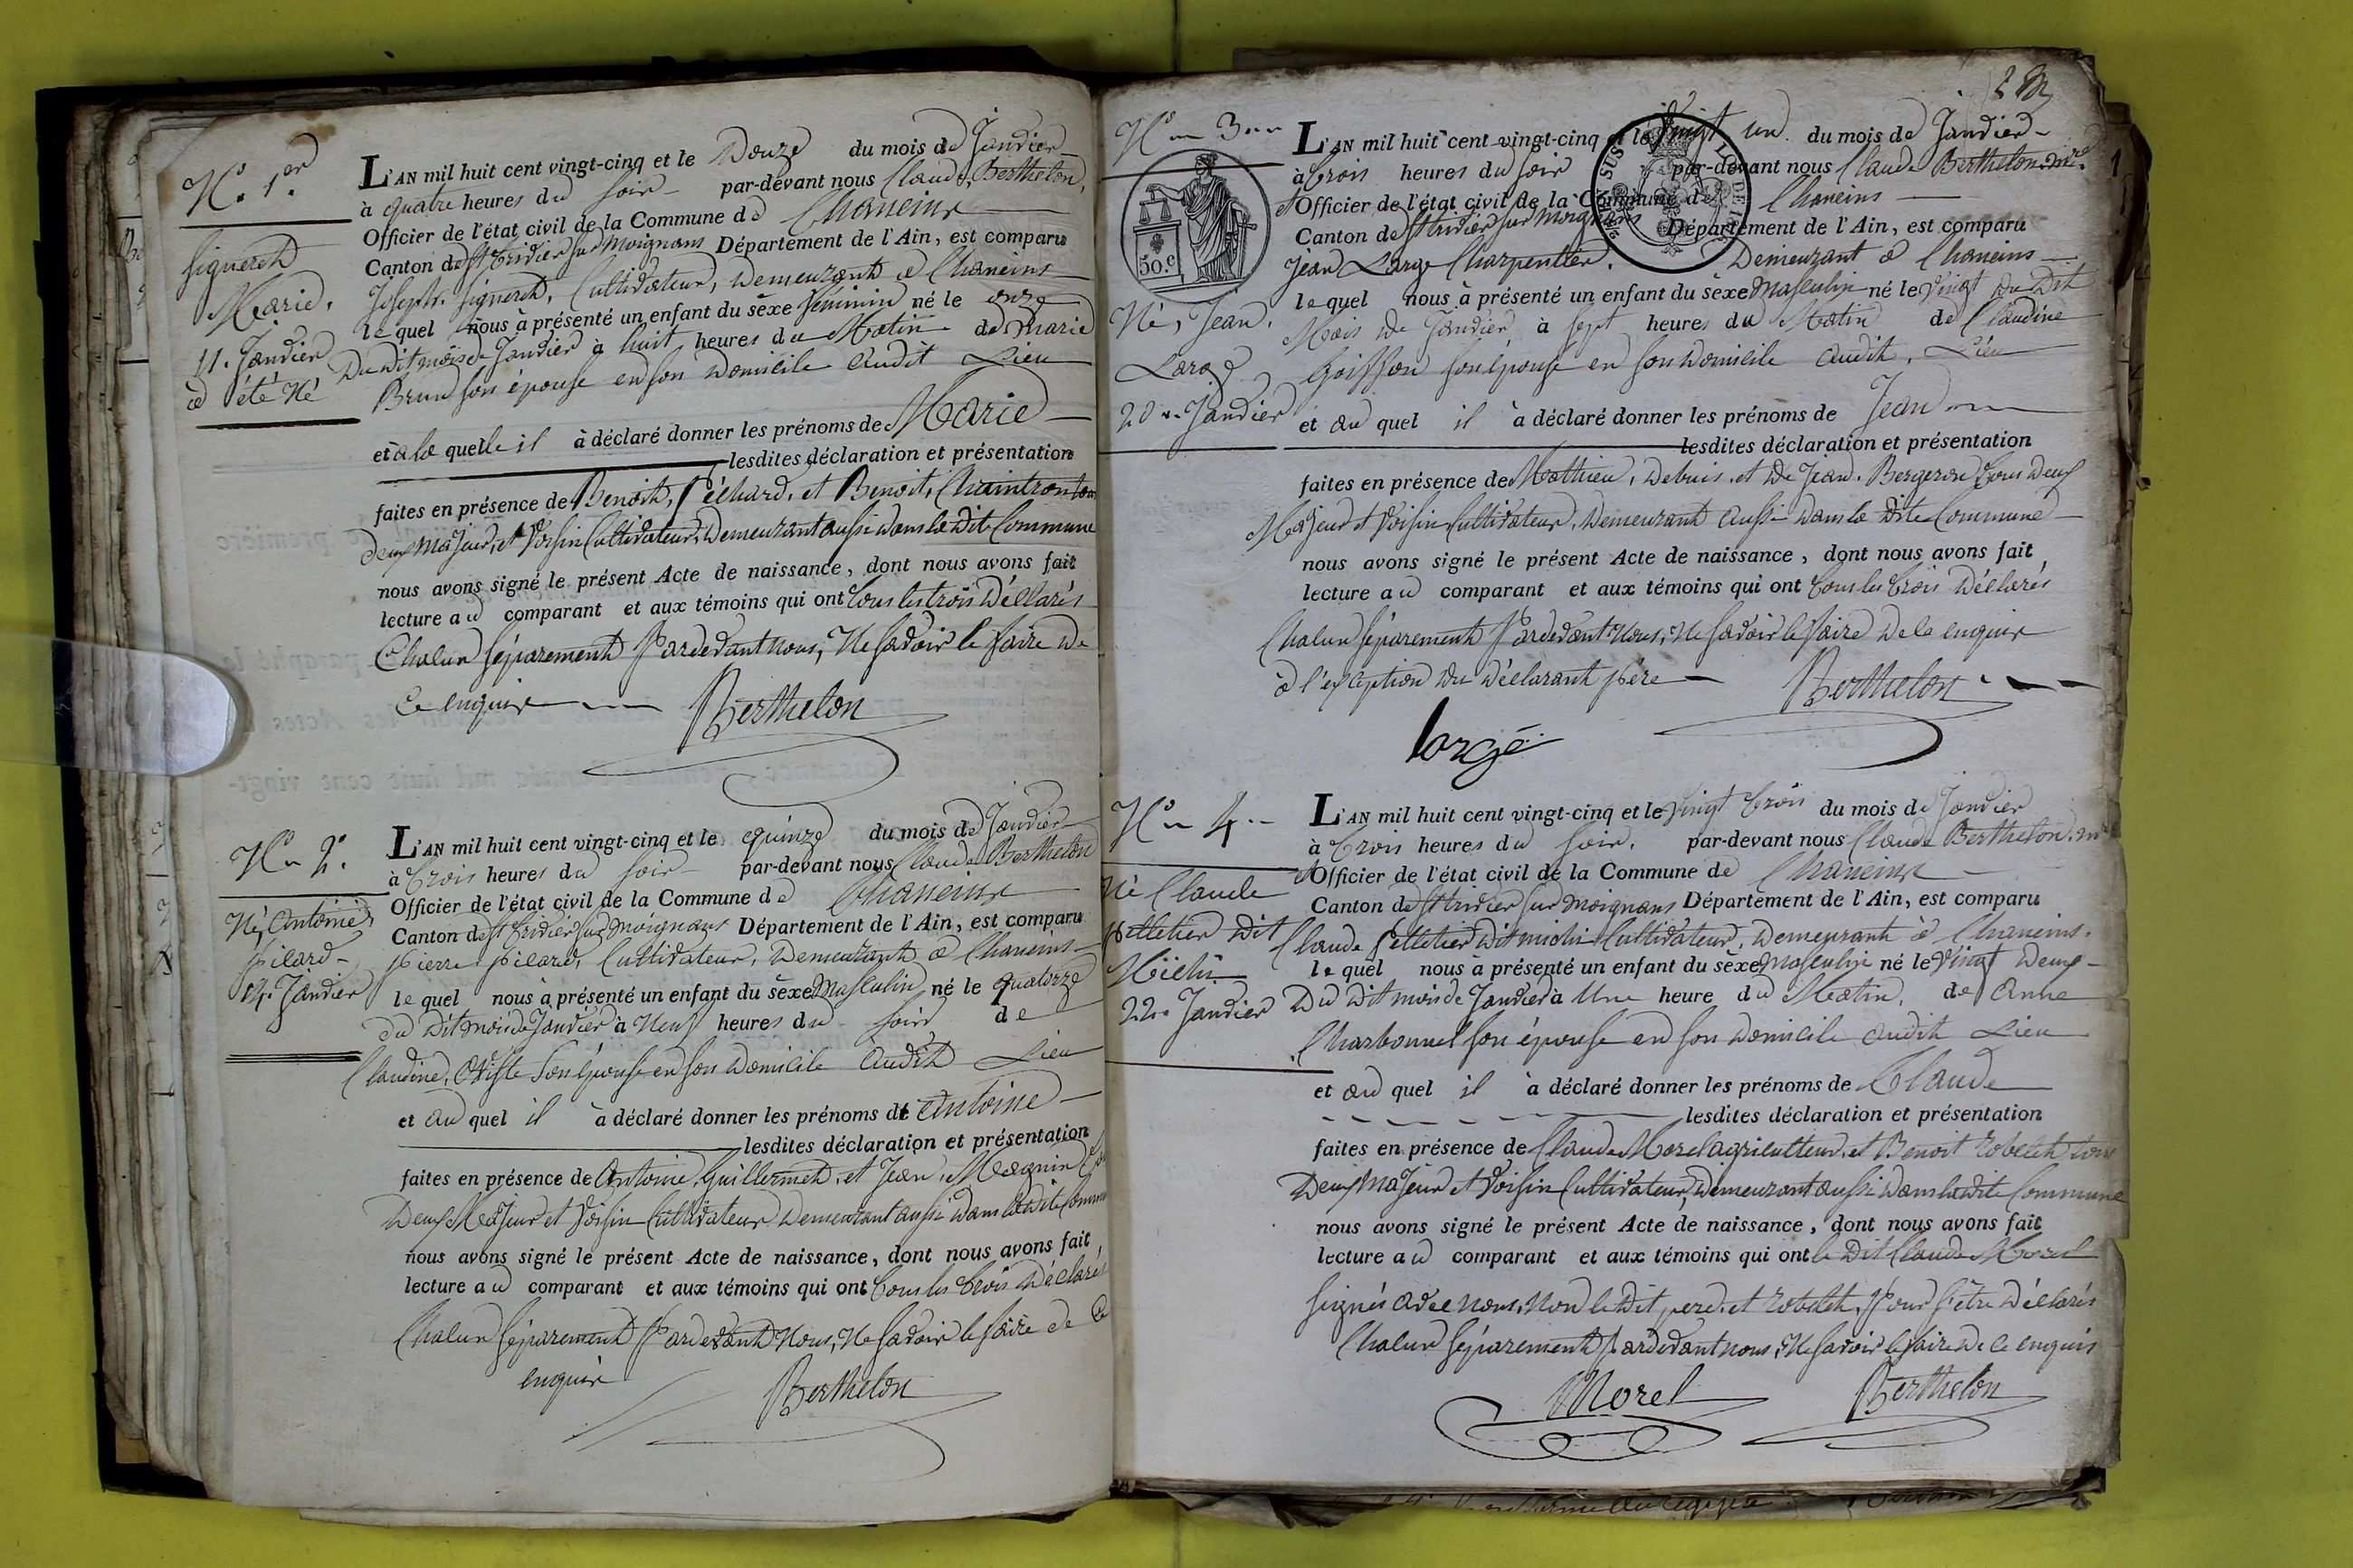 N.o 1.er
Figueret
Marie.
11. Janvier
a été Né
L'AN mil huit cent vingt-cinq et le Douze du mois de Janvier
à quatre heures du soir par-devant nous Claude Berthelon,
Officier de l'état civil de la Commune de Chaneins
Canton de St trivier sur Moignans Département de l'Ain, est comparu
Joseph figueret, Cultivateur, Demeurant a Chaneins
le quel nous à présenté un enfant du sèxe féminin né le onze
Du Dit mois de Janvier à huit heures du Matin de Marie
Brun son épouse en son Domicile audit Lieu
et a la quelle il à déclaré donner les prénoms de Marie
lesdites déclaration et présentation
faites en présence de Benoit, Péchard, et Benoit, Chaintron tous
deux Majeur, et Voisin Cultivateur, Demeurant aussi dans la Dite Commune
nous avons signé le présent Acte de naissance, dont nous avons fait
lecture au comparant et aux témoins qui ont tous les trois Déclarés
Chacun séparement Pardevant nous, Ne savoir le faire de
Ce enquis Berthelon
N.o 2.e
Né, Antoine,
Picard
14. Janvier
L'AN mil huit cent vingt-cinq et le quinze du mois de Janvier
à trois heures du soir par-devant nous Claude Berthelon
Officier de l'état civil de la Commune de Chaneins
Canton de St trivier sur Moignans Département de l'Ain, est comparu
Pierre Picard, Cultivateur, Demeurant a Chaneins
le quel nous à présenté un enfant du sèxe Masculin né le quatorze
du Dit mois de Janvier à Neuf heures du soir de
Claudine, son Epouse en son Domicile audit Lieu
et au quel il à déclaré donner les prénoms de Antoine
lesdites déclaration et présentation
faites en présence de Antoine Guillermet, et Jean, Magnin
Deux Majeur et Voisin Cultivateur Demeurant aussi dans la Dite Commune
nous avons signé le présent Acte de naissance, dont nous avons fait
lecture au comparant et aux témoins qui ont tous les trois Déclarés
Chacun séparement Pardevant Nous, Ne savoir le faire de Ce
enquis
Berthelon
N.o 3
50.c
Né, Jean,
Large
20 Janvier
L'AN mil huit cent vingt-cinq et le vingt un du mois de Janvier
à trois heures du soir par-devant nous Claude Berthelon mre
Officier de l'état civil de la Commune de Chaneins
Canton de St trivier sur Moignans Département de l'Ain, est comparu
Jean Large Charpentier. Demeurant a Chaneins
le quel nous à présenté un enfant du sèxe Masculin né le Vingt Du Dit
Mois de Janvier à sept heures du Matin de Claudine
Goiffon son épouse en son Domicile audit, Lieu
et au quel il à déclaré donner les prénoms de Jean
lesdites déclaration et présentation
faites en présence de Mathieu, Debuis, et De Jean. Bergeron tous Deux
Majeur et Voisin Cultivateur, Demeurant aussi Dans la Dite Commune
nous avons signé le présent Acte de naissance, dont nous avons fait
lecture au comparant et aux témoins qui ont tous les trois Déclarés
Chacun séparement Pardevant Nous, Ne savoir le faire De Ce enquis
a l'exception Du Déclarant père
Berthelon
large
N.o 4.
Né Claude
pelletier Dit
Michi
22. Janvier
L'AN mil huit cent vingt-cinq et le Vingt trois du mois de Janvier
à trois heures du soir, par-devant nous Claude Berthelon. mre
Officier de l'état civil de la Commune de Chaneins
Canton de St trivier sur Moignans Département de l'Ain, est comparu
Claude Pelletier Dit Michi Cultivateur, Demeurant à Chaneins.
le quel nous à présenté un enfant du sèxe Masculin né le Vingt Deux
Du Dit mois de Janvier à Une heure du Matin, de Anne
Charbonnel son épouse en son Domicile audit Lieu
et au quel il à déclaré donner les prénoms de Claude
lesdites déclaration et présentation
faites en présence de Claude Morel agriculteur, et Benoit Robelet tous
Deux Majeur et Voisin Cultivateur, Demeurant aussi Dans la Dite Commune
nous avons signé le présent Acte de naissance, dont nous avons fait
lecture au comparant et aux témoins qui ont le Dit Claude Morel
signés avec nous, Non le Dit pere, et Robelet, Pour s'être Déclarés
Chacun séparement pardevant nous, Ne savoir le faire De Ce enquis
Morel
Berthelon